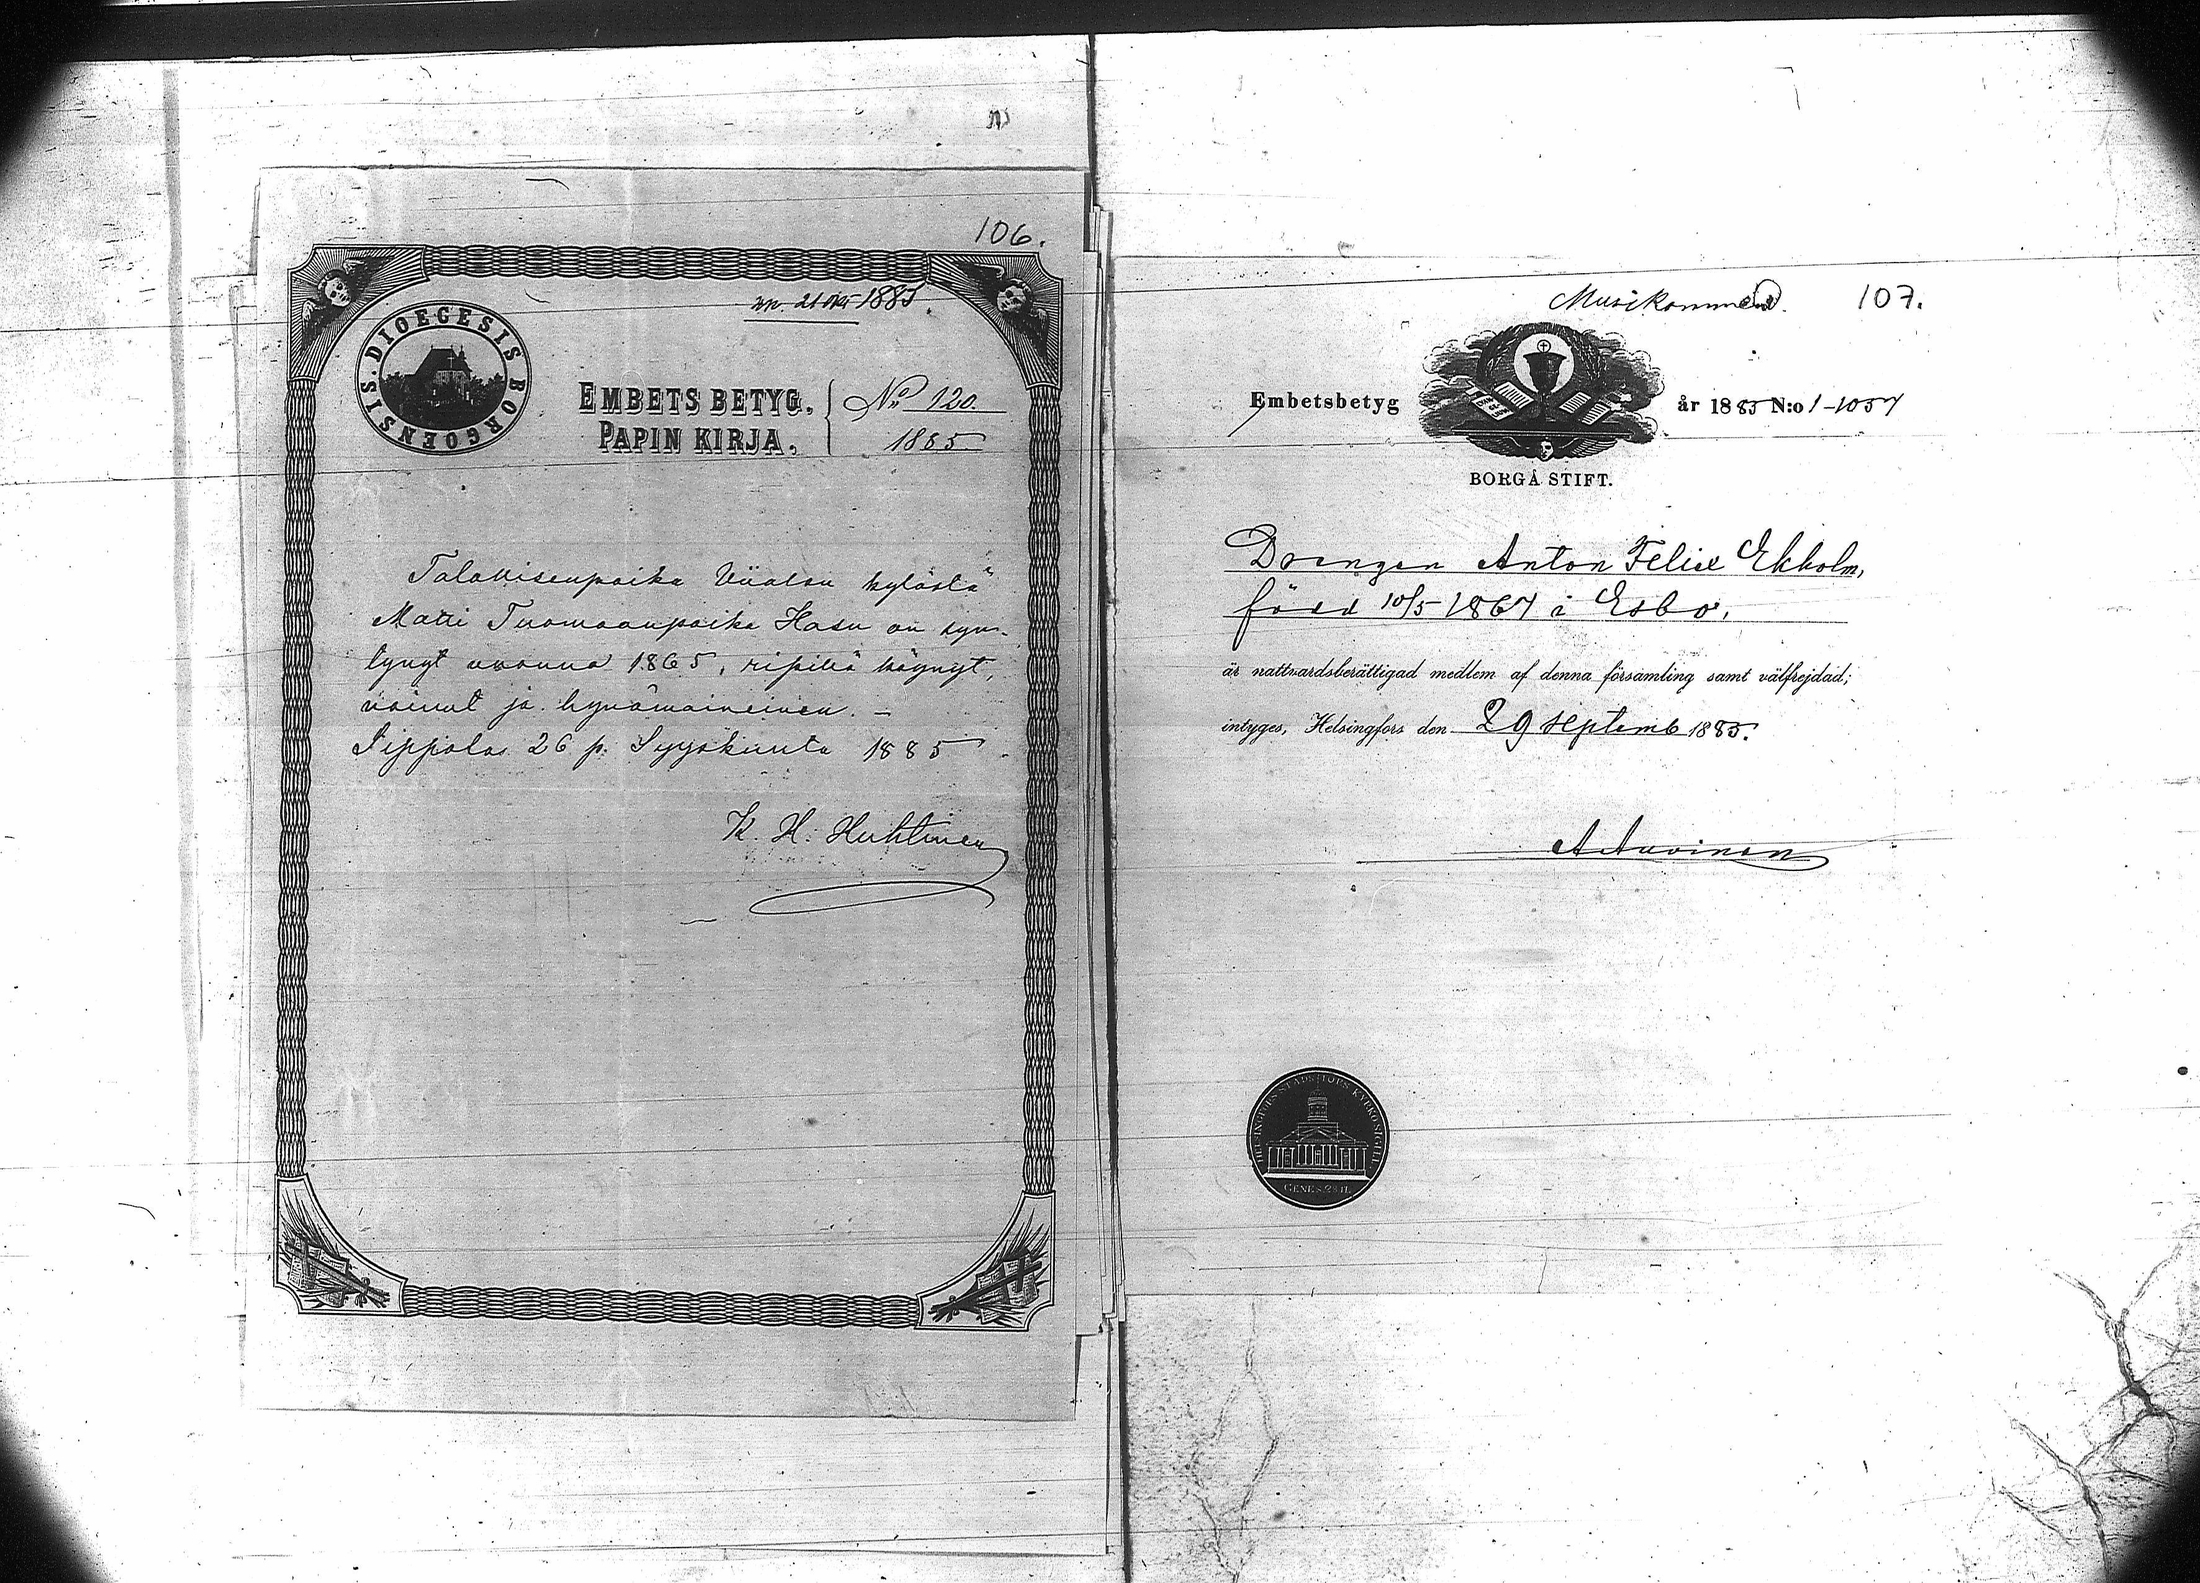 106.
21 Okt 1885.
DIOECESIS BORGOENSIS.
EMBETS BETYG. No 120.
PAPIN KIRJA. 1885
Talollisenpoika Viialan kylästä
Matti Tuomaanpoika Hasu on syn-
tynyt vuonna 1865, ripillä käynyt,
ja hyvämaineinen. –
Sippolas 26 p. Syyskuuta 1885.
K. H. Huhtinen
107.
Embetsbetyg år 1885 N:o 1-1057
BORGÅ STIFT.
Drengen Anton Felix Ekholm,
född 10/5 1867 i Esbo,
är nattvardsberättigad medlem af denna församling samt välfrejdad;
intyges, Helsingfors den 29 Septemb 1885.
A Auvinen
HELSINGFORS STADS KYRKOSIGILL
GENES. 28